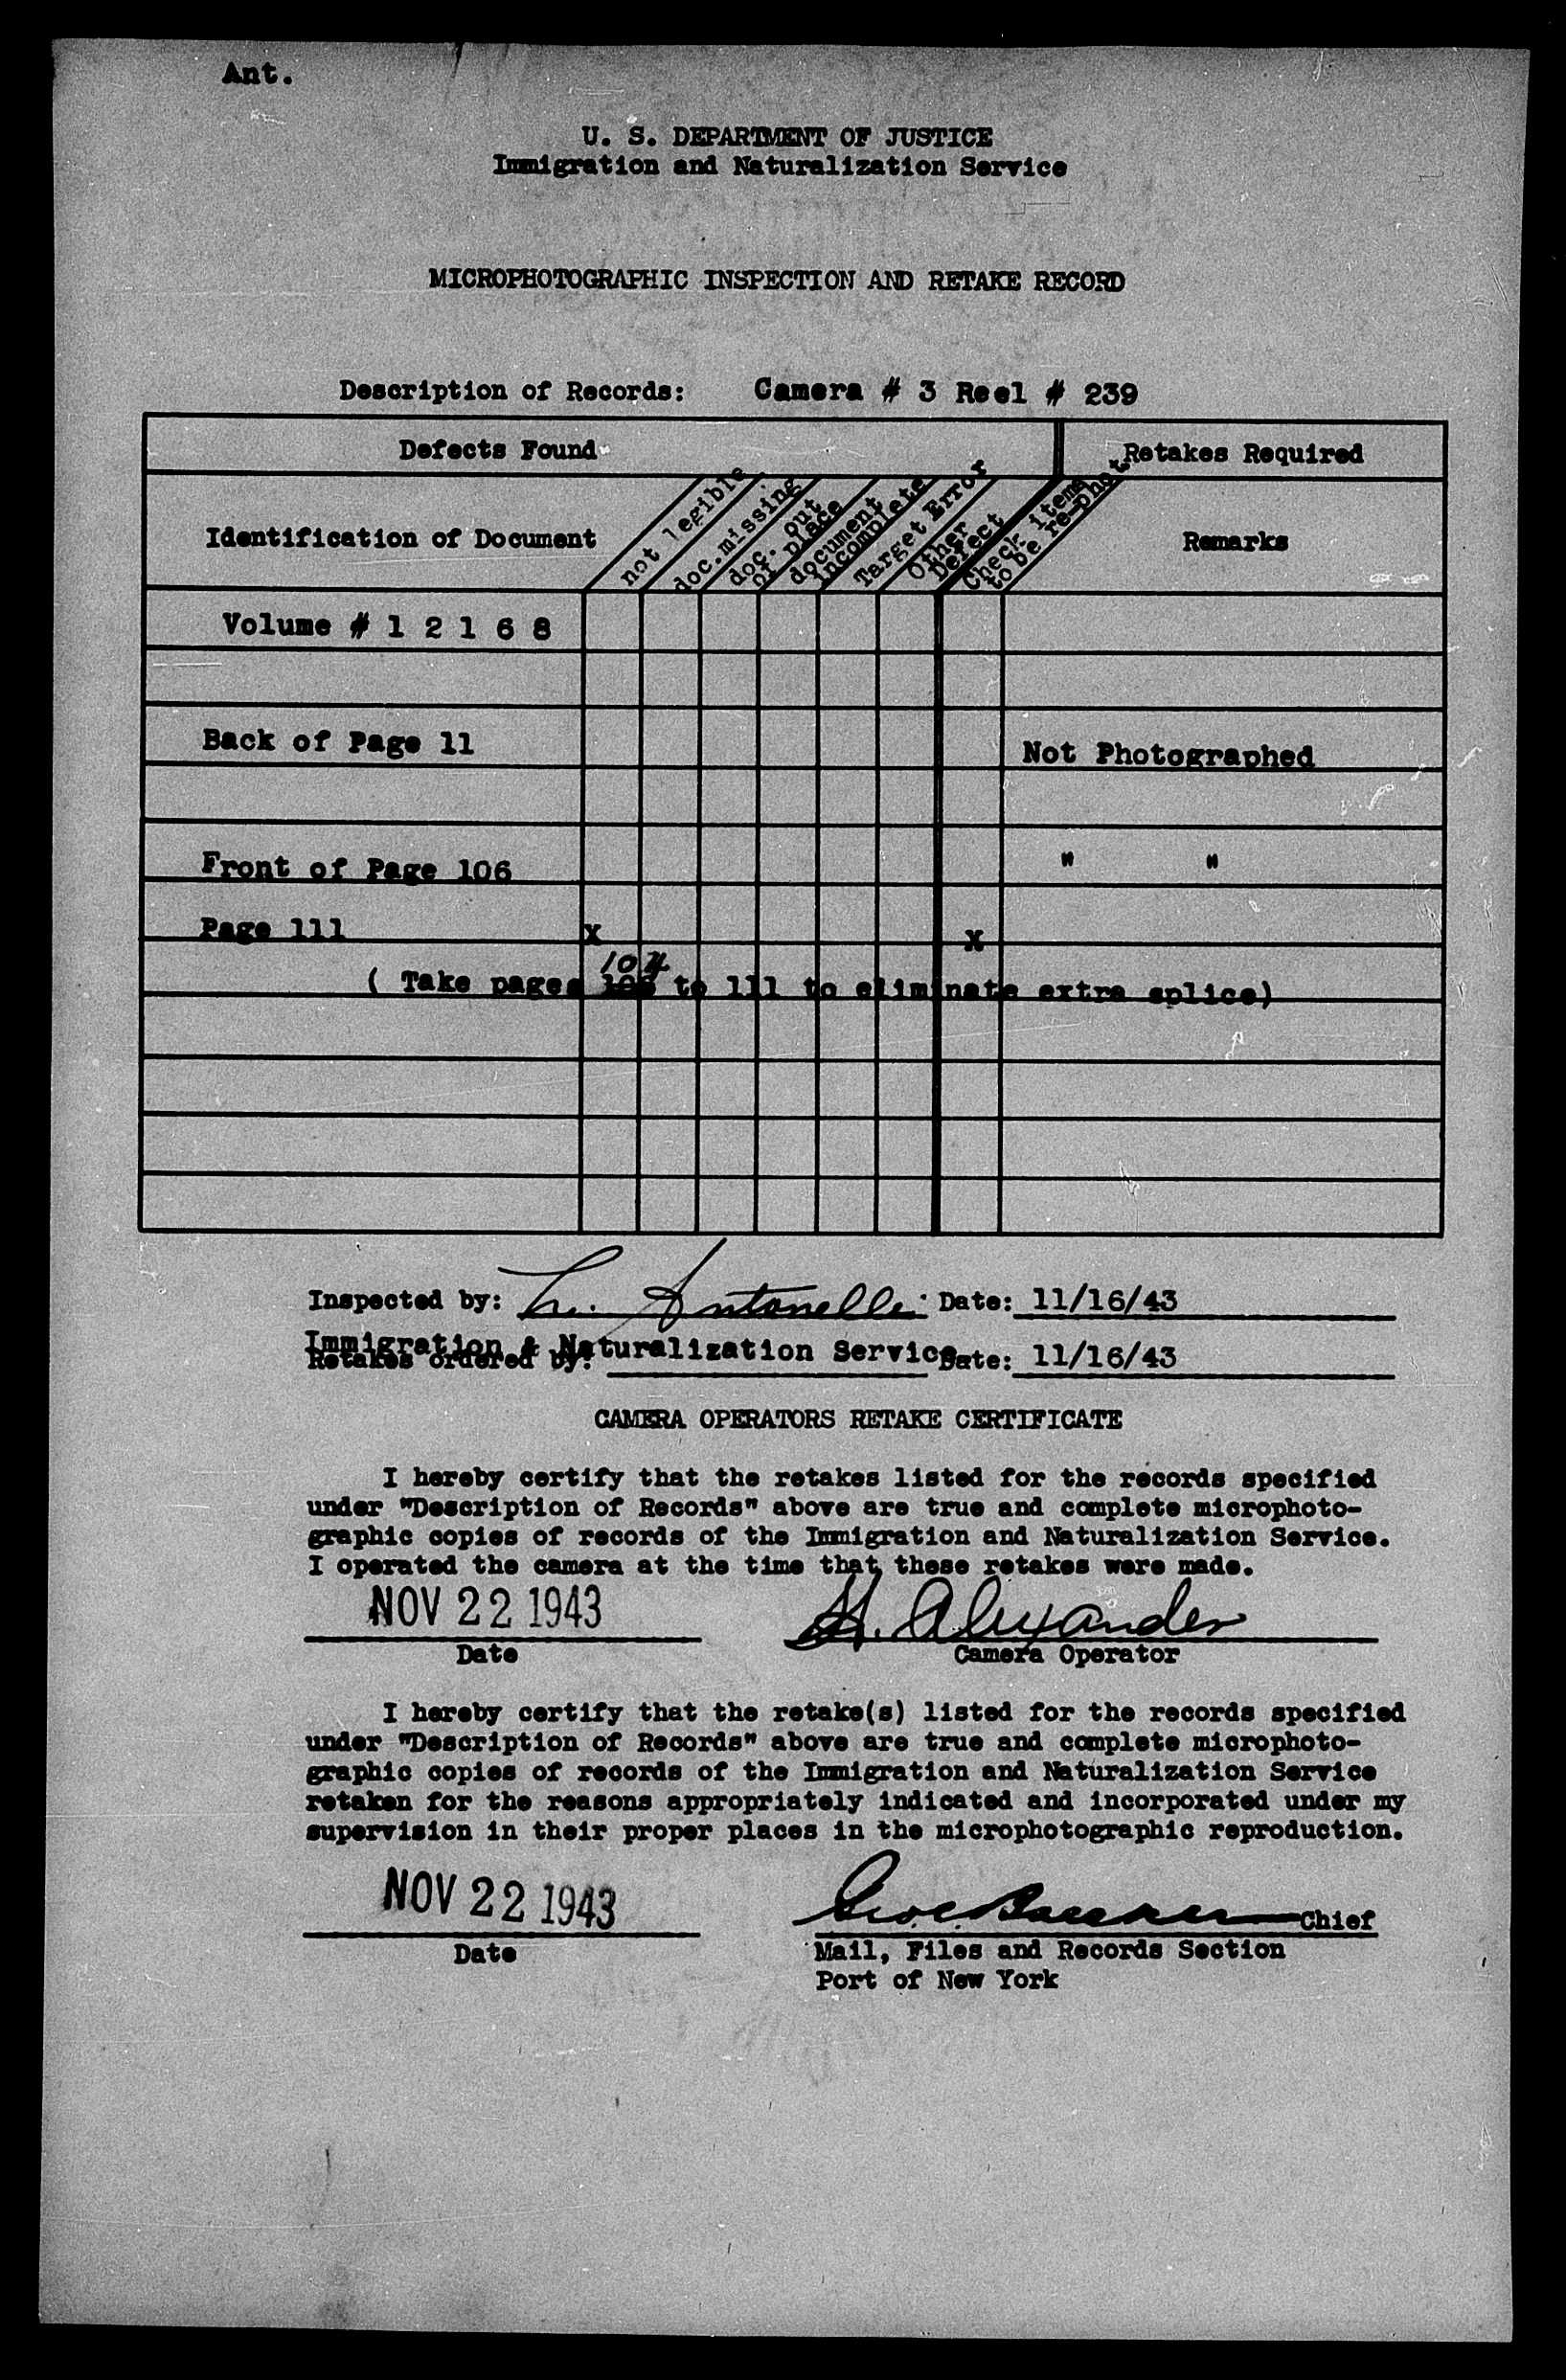 Ant.
U. S. DEPARTMENT OF JUSTICE
Immigration and Naturalization Service
MICROPHOTOGRAPHIC INSPECTION AND RETAKE RECORD
Description of Records: Camera # 3 Reel # 239
Defects Found Retakes Required
Identification of Document
not legible
doc.missing
doc. out
of place
document
incomplete
Target Error
Other
Defect
Check items
to be re-phot
Remarks
Volume # 1 2 1 6 8
Back of Page 11 Not Photographed
Front of Page 106 " "
Page 111 x x
104
( Take pages to 111 to eliminate extra splice)
Inspected by: Antonelli Date: 11/16/43
Immigration & Naturalization Service
Retakes ordered by: Date: 11/16/43
CAMERA OPERATORS RETAKE CERTIFICATE
I hereby certify that the retakes listed for the records specified
under "Description of Records" above are true and complete microphoto-
graphic copies of records of the Immigration and Naturalization Service.
I operated the camera at the time that these retakes were made.
NOV 22 1943 H. Alexander
Date Camera Operator
I hereby certify that the retake(s) listed for the records specified
under "Description of Records" above are true and complete microphoto-
graphic copies of records of the Immigration and Naturalization Service
retaken for the reasons appropriately indicated and incorporated under my
supervision in their proper places in the microphotographic reproduction.
NOV 22 1943 Chief
Date Mail, Files and Records Section
Port of New York